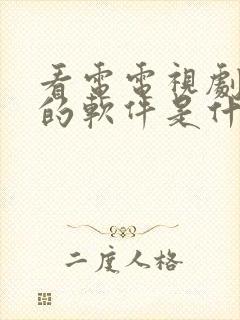 看電電視劇
的軟件是什
二度人格